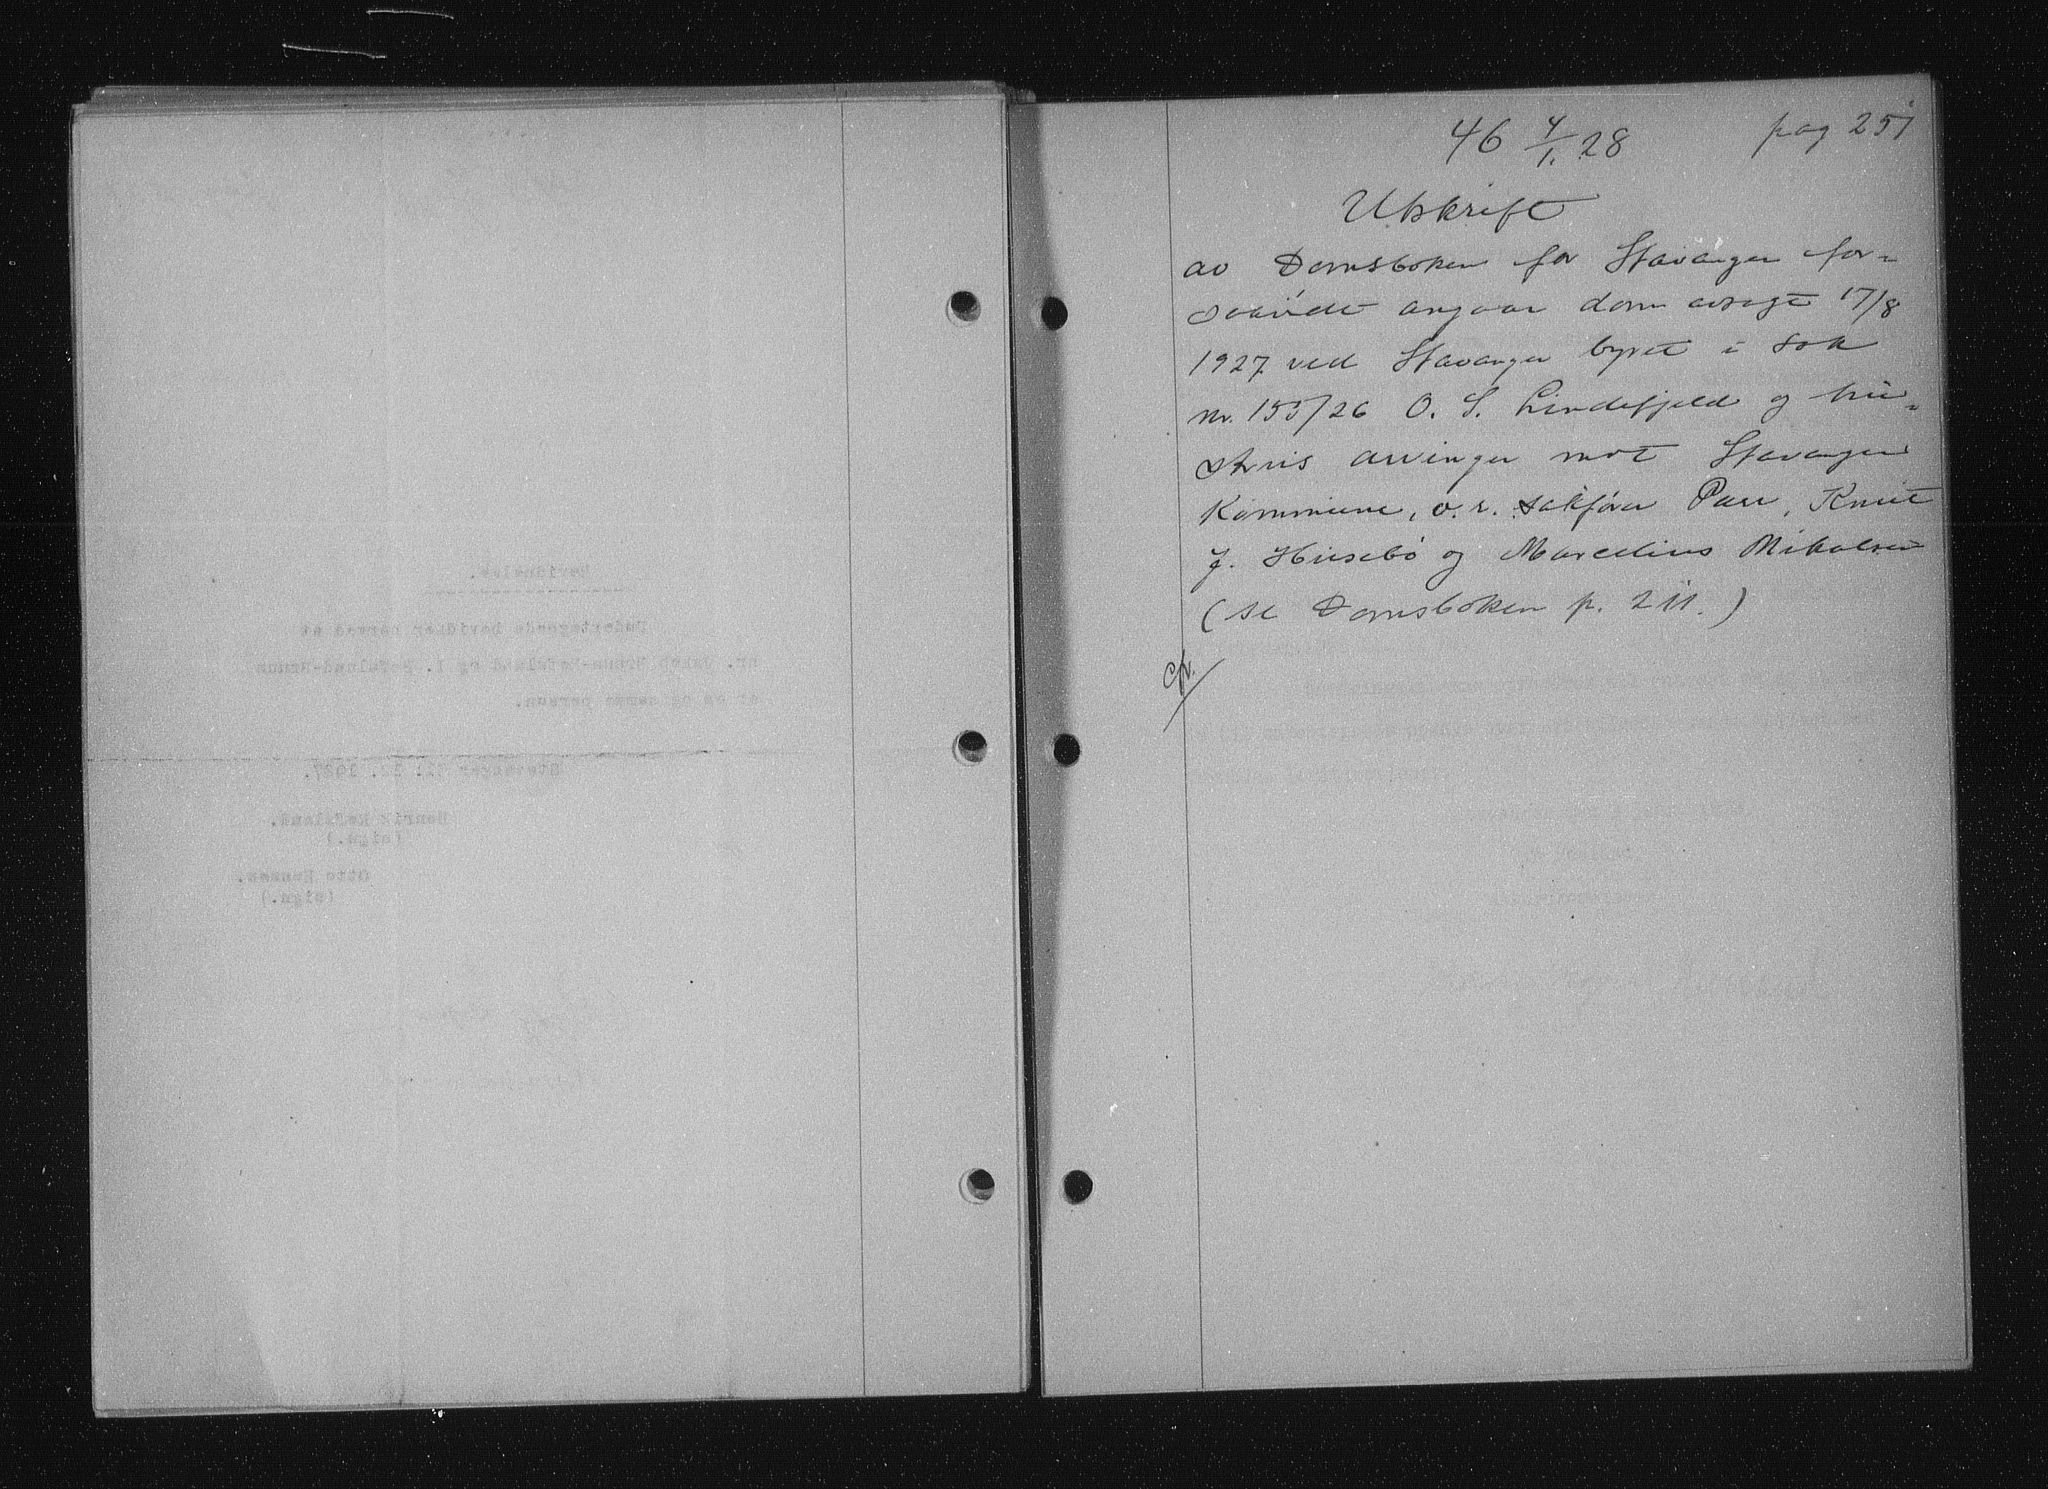 46 4/1. 28 pag 251
Utskrift
av Domsboken for Stavanger for-
saavidt angaar dom avsagt 17/8
1927 ved Stavanger byret i sak
nr. 155/26 O. S. Lindefjeld og hu-
strus arvinger mot Stavanger
Kommune, o. r. sakfører Parr, Knut
J. Husebö og Marcelius Mikalsen
(se Domsboken p. 211.)